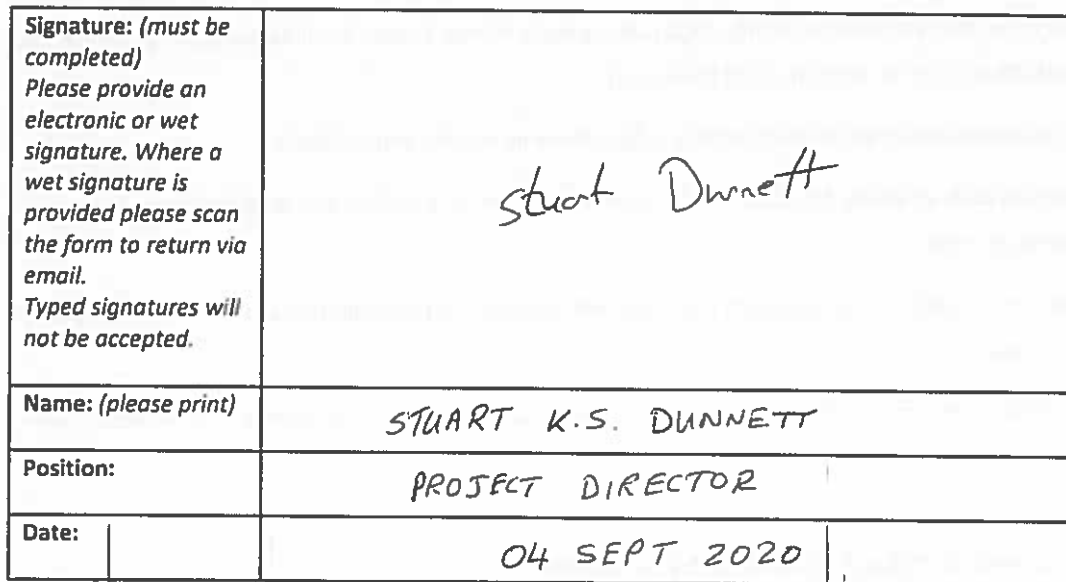 Signature: (must be
completed)
Please provide an
electronic or wet
signature. Where a
wet signature is
provided please scan
the form to return via
email.
Typed signatures will
not be accepted.
Stuart Dunnett
Name: (please print) STUART K.S. DUNNETT
Position: PROJECT DIRECTOR
Date: 04 SEPT 2020